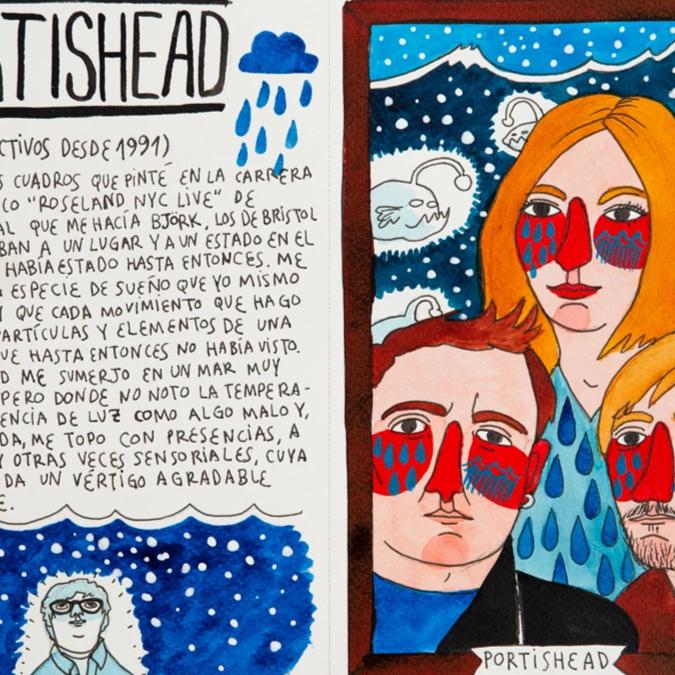 TISHEAD
CTIVOS DESDE 1991)
S CUADROS QUE PINTÉ EN LA CARRERA
CO "ROSELAND NYC LIVE" DE
AL QUE ME HACÍA BJÖRK, LOS DE BRISTOL
BAN A UN LUGAR Y A UN ESTADO EN EL
HABÍA ESTADO HASTA ENTONCES. ME
ESPECIE DE SUEÑO QUE YO MISMO
Y QUE CADA MOVIMIENTO QUE HAGO
PARTÍCULAS Y ELEMENTOS DE UNA
UE HASTA ENTONCES NO HABÍA VISTO.
D ME SUMERJO EN UN MAR MUY
PERO DONDE NO NOTO LA TEMPERA-
ENCIA DE LUZ COMO ALGO MALO Y,
DA, ME TOPO CON PRESENCIAS, A
Y OTRAS VECES SENSORIALES, CUYA
DA UN VÉRTIGO AGRADABLE
E.
PORTISHEAD